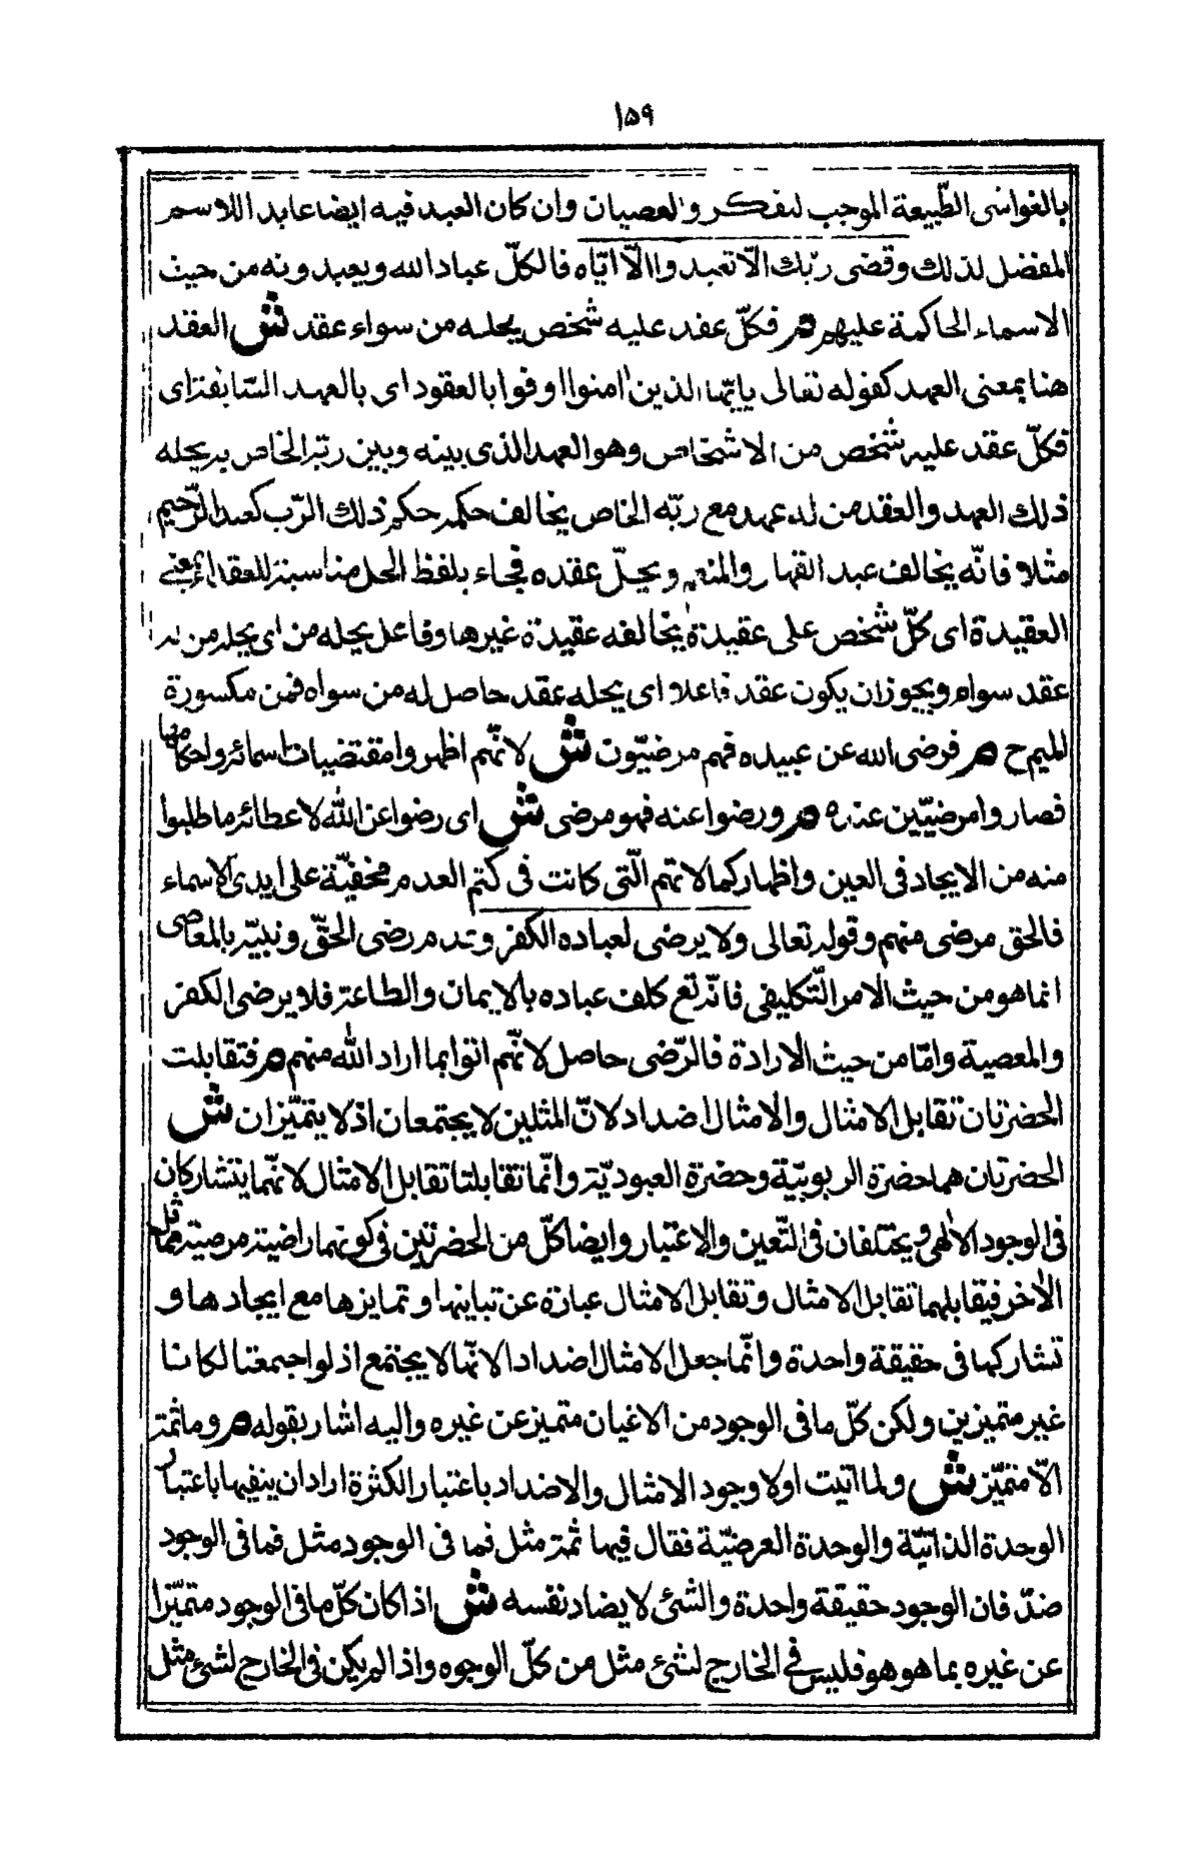 ۱۵۹
بالغواشى الطّبيعة الموجب للفكر والعصيان وان كان العبد فيه ايضا عابد اللاسم
المفضل لذلك وقضى ربّك الّا تعبدوا الّا ايّاه فالكلّ عباد الله ويعبدونه من حيث
الاسماء الحاكمة عليهم م فكلّ عقد عليه شخص يحله من سواء عقد ش العقد
هنا بمعنى العهد كقوله تعالى يا ايّها الذين امنوا اوفوا بالعقود اى بالعهد السّابقة اى
فكلّ عقد عليه شخص من الاشخاص وهو العهد الذى بينه وبين ربّه الخاص به يحله
ذلك العهد والعقد من له عهد مع ربّه الخاص يخالف حكمه حكم ذلك الرّب كعبد الرّحيم
مثلا فانّه يخالف عبد القهار والمنتقم ويحلّ عقده فجاء بلفظ الحل مناسبة للعقد اى بمعنى
العقيدة اى كلّ شخص على عقيدة يخالفه عقيدة غيرها وفاعل يحله من اى يحله من به
عقد سواه ويجوز ان يكون عقد فاعلا اى يحله عقد حاصل له من سواه فمن مكسورة
الميم ح م فرضى الله عن عبيده فهم مرضيّون ش لانّهم اظهروا مقتضيات اسمائه واحكامها
فصاروا مرضيّين عنده م ورضوا عنه فهو مرضى ش اى رضوا عن الله لاعطائه ما طلبوا
منه من الايجاد فى العين واظهار كمالاتهم الّتى كانت فى كتم العدم مخفيّة على ايدى الاسماء
فالحق مرضى منهم وقوله تعالى ولا يرضى لعباده الكفر وعدم رضى الحقّ ونبيّه بالمعاصى
انما هو من حيث الامر التّكليفى فانّه تع كلف عباده بالايمان والطاعة فلا يرضى الكفر
والمعصية وامّا من حيث الارادة فالرّضى حاصل لانّهم اتوا بما اراد الله منهم م فتقابلت
الحضرتان تقابل الامثال والامثال اضداد لانّ المثلين لا يجتمعان اذ لا يتميّزان ش
الحضرتان هما حضرة الربوبيّة وحضرة العبوديّة وانّما تقابلتا تقابل الامثال لانّهما يتشاركان
فى الوجود الالٰهى ويختلفان فى التّعين والاعتبار وايضا كلّ من الحضرتين فى كونهما راضية مرضية تماثل
الاخر فيقابلهما تقابل الامثال وتقابل الامثال عبارة عن تباينها وتمايزها مع ايجادها و
تشاركها فى حقيقة واحدة وانّما جعل الامثال اضدادا لانّها لا يجتمع اذ لو اجتمعتا لكانا
غير متميزين ولكن كلّ ما فى الوجود من الاغيان متميز عن غيره واليه اشار بقوله م وما ثمّة
الّا متميّز ش ولما اثبت اولا وجود الامثال والاضداد باعتبار الكثرة اراد ان ينفيها باعتبار
الوحدة الذاتيّة والوحدة العرضيّة فقال فيها ثمّة مثل فما فى الوجود مثل فما فى الوجود
ضدّ فان الوجود حقيقة واحدة والشئ لا يضاد نفسه ش اذا كان كلّ ما فى الوجود متميّزا
عن غيره بما هو هو فليس فى الخارج لشئ مثل من كلّ الوجوه واذا لم يكن فى الخارج لشئ مثل